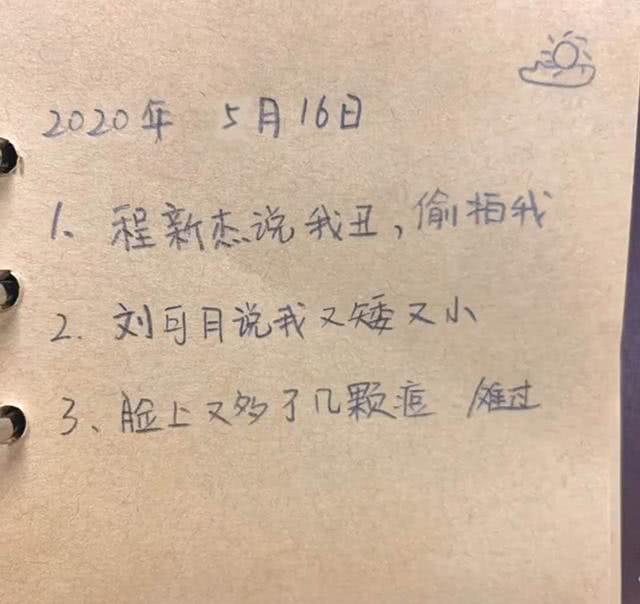 2020年 5月16日
1、程新杰说我丑,偷拍我
2. 刘可月说我又矮又小
3、脸上又多了几颗痘 难过